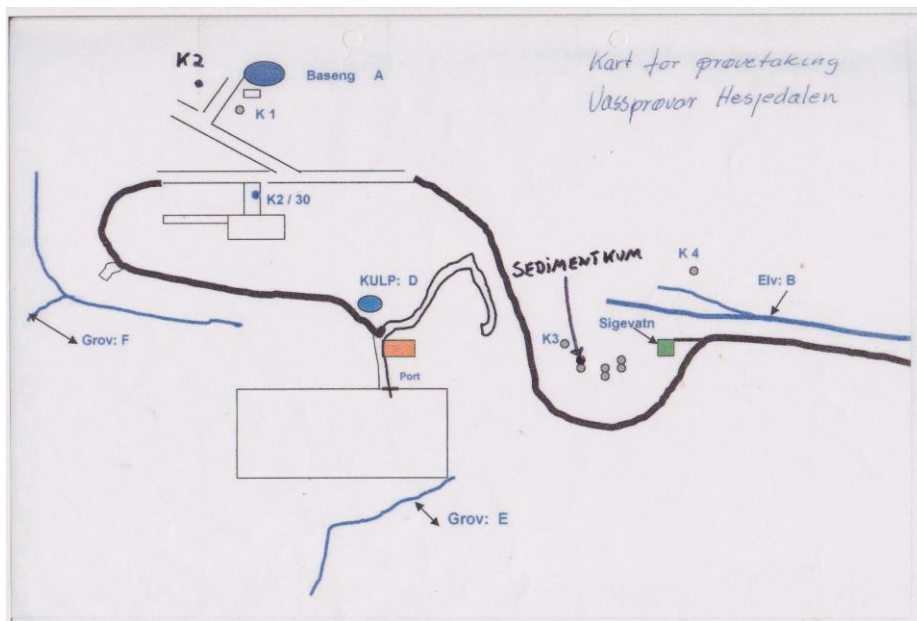 Kart for prøvetaking
Vassprøvar Hesjedalen
K2
Baseng A
K 1
K2 / 30
KULP: D
SEDIMENTKUM
K 4
Elv: B
Sigevatn
K3
Grov: F
Port
Grov: E